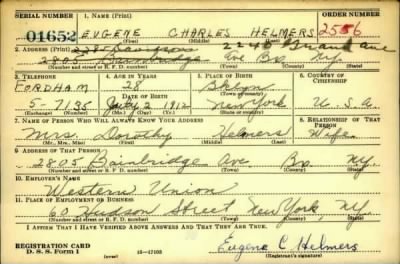 SERIAL NUMBER 1. NAME (Print) ORDER NUMBER
01652 EUGENE CHARLES HELMERS 2556
(First) (Middle) (Last)
2. ADDRESS (Print) 2240 Ave
2805 Bainbridge Ave Bx. N.Y.
(Number and street or R. F. D. number) (Town) (County) (State)
3. TELEPHONE 4. AGE IN YEARS 5. PLACE OF BIRTH 6. COUNTRY OF CITIZENSHIP
FORDHAM 28 Bklyn
DATE OF BIRTH (Town or county)
5-7135 July 2 1912 New York U.S.A.
(Exchange) (Number) (Mo.) (Day) (Yr.) (State or country)
7. NAME OF PERSON WHO WILL ALWAYS KNOW YOUR ADDRESS 8. RELATIONSHIP OF THAT PERSON
Mrs. Dorothy Helmers Wife
(Mr., Mrs., Miss) (First) (Middle) (Last)
9. ADDRESS OF THAT PERSON
2805 Bainbridge Ave Bx. N.Y.
(Number and street or R. F. D. number) (Town) (County) (State)
10. EMPLOYER'S NAME
Western Union
11. PLACE OF EMPLOYMENT OR BUSINESS
60 Hudson Street New York, N.Y.
(Number and street or R. F. D. number) (Town) (County) (State)
I AFFIRM THAT I HAVE VERIFIED ABOVE ANSWERS AND THAT THEY ARE TRUE.
REGISTRATION CARD
D. S. S. Form 1 16-17105 Eugene C Helmers
(Registrant's signature)